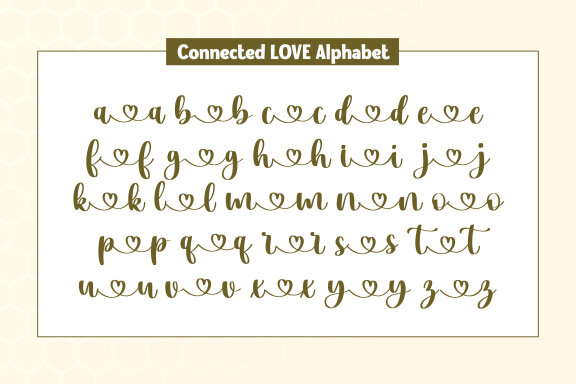 Connected LOVE Alphabet
a♡a b♡b c♡c d♡d e♡e
f♡f g♡g h♡h i♡i j♡j
k♡k l♡l m♡m n♡n o♡o
p♡p q♡q r♡r s♡s t♡t
u♡u v♡v x♡x y♡y z♡z